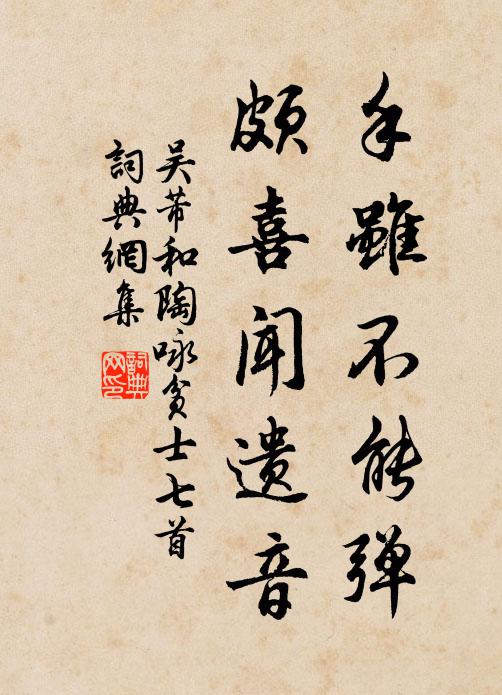 手雖不能弹
頗喜聞遗音
吴芾和陶咏贫士七首
詞典網集
詞典
网印